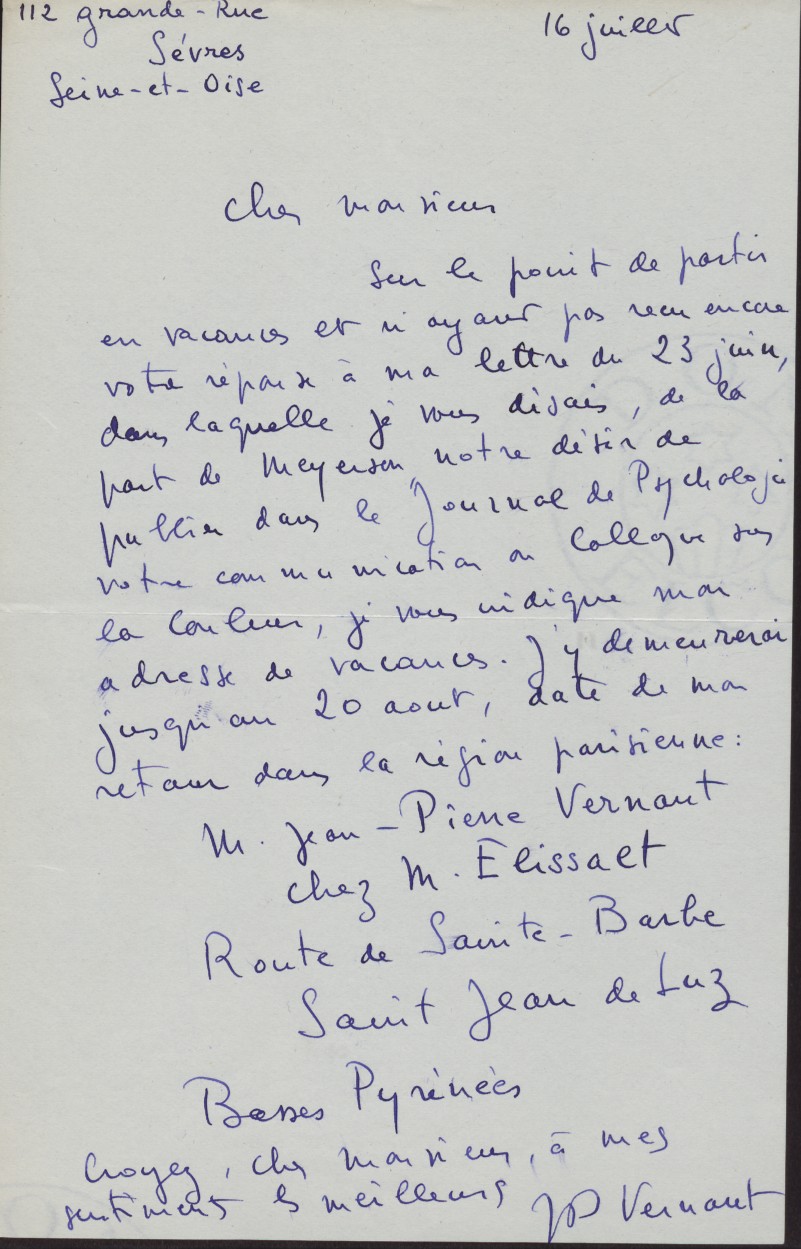 112 grande-Rue
16 juillet
Sévres
Seine-et-Oise
Cher monsieur
Sur le point de partir
en vacances et n'ayant pas reçu encore
votre réponse à ma lettre du 23 juin,
dans laquelle je vous disais, de la
part de Meyerson, notre désir de
publier dans le Journal de Psychologie
votre communication au Colloque sur
la Couleur, je vous indique mon
adresse de vacances. J'y demeurerai
jusqu'au 20 aout, date de mon
retour dans la région parisienne:
M. Jean-Pierre Vernant
chez M. Élissalt
Route de Sainte-Barbe
Saint Jean de Luz
Basses Pyrénées
Croyez, cher monsieur, à mes
sentiments les meilleurs JP Vernant